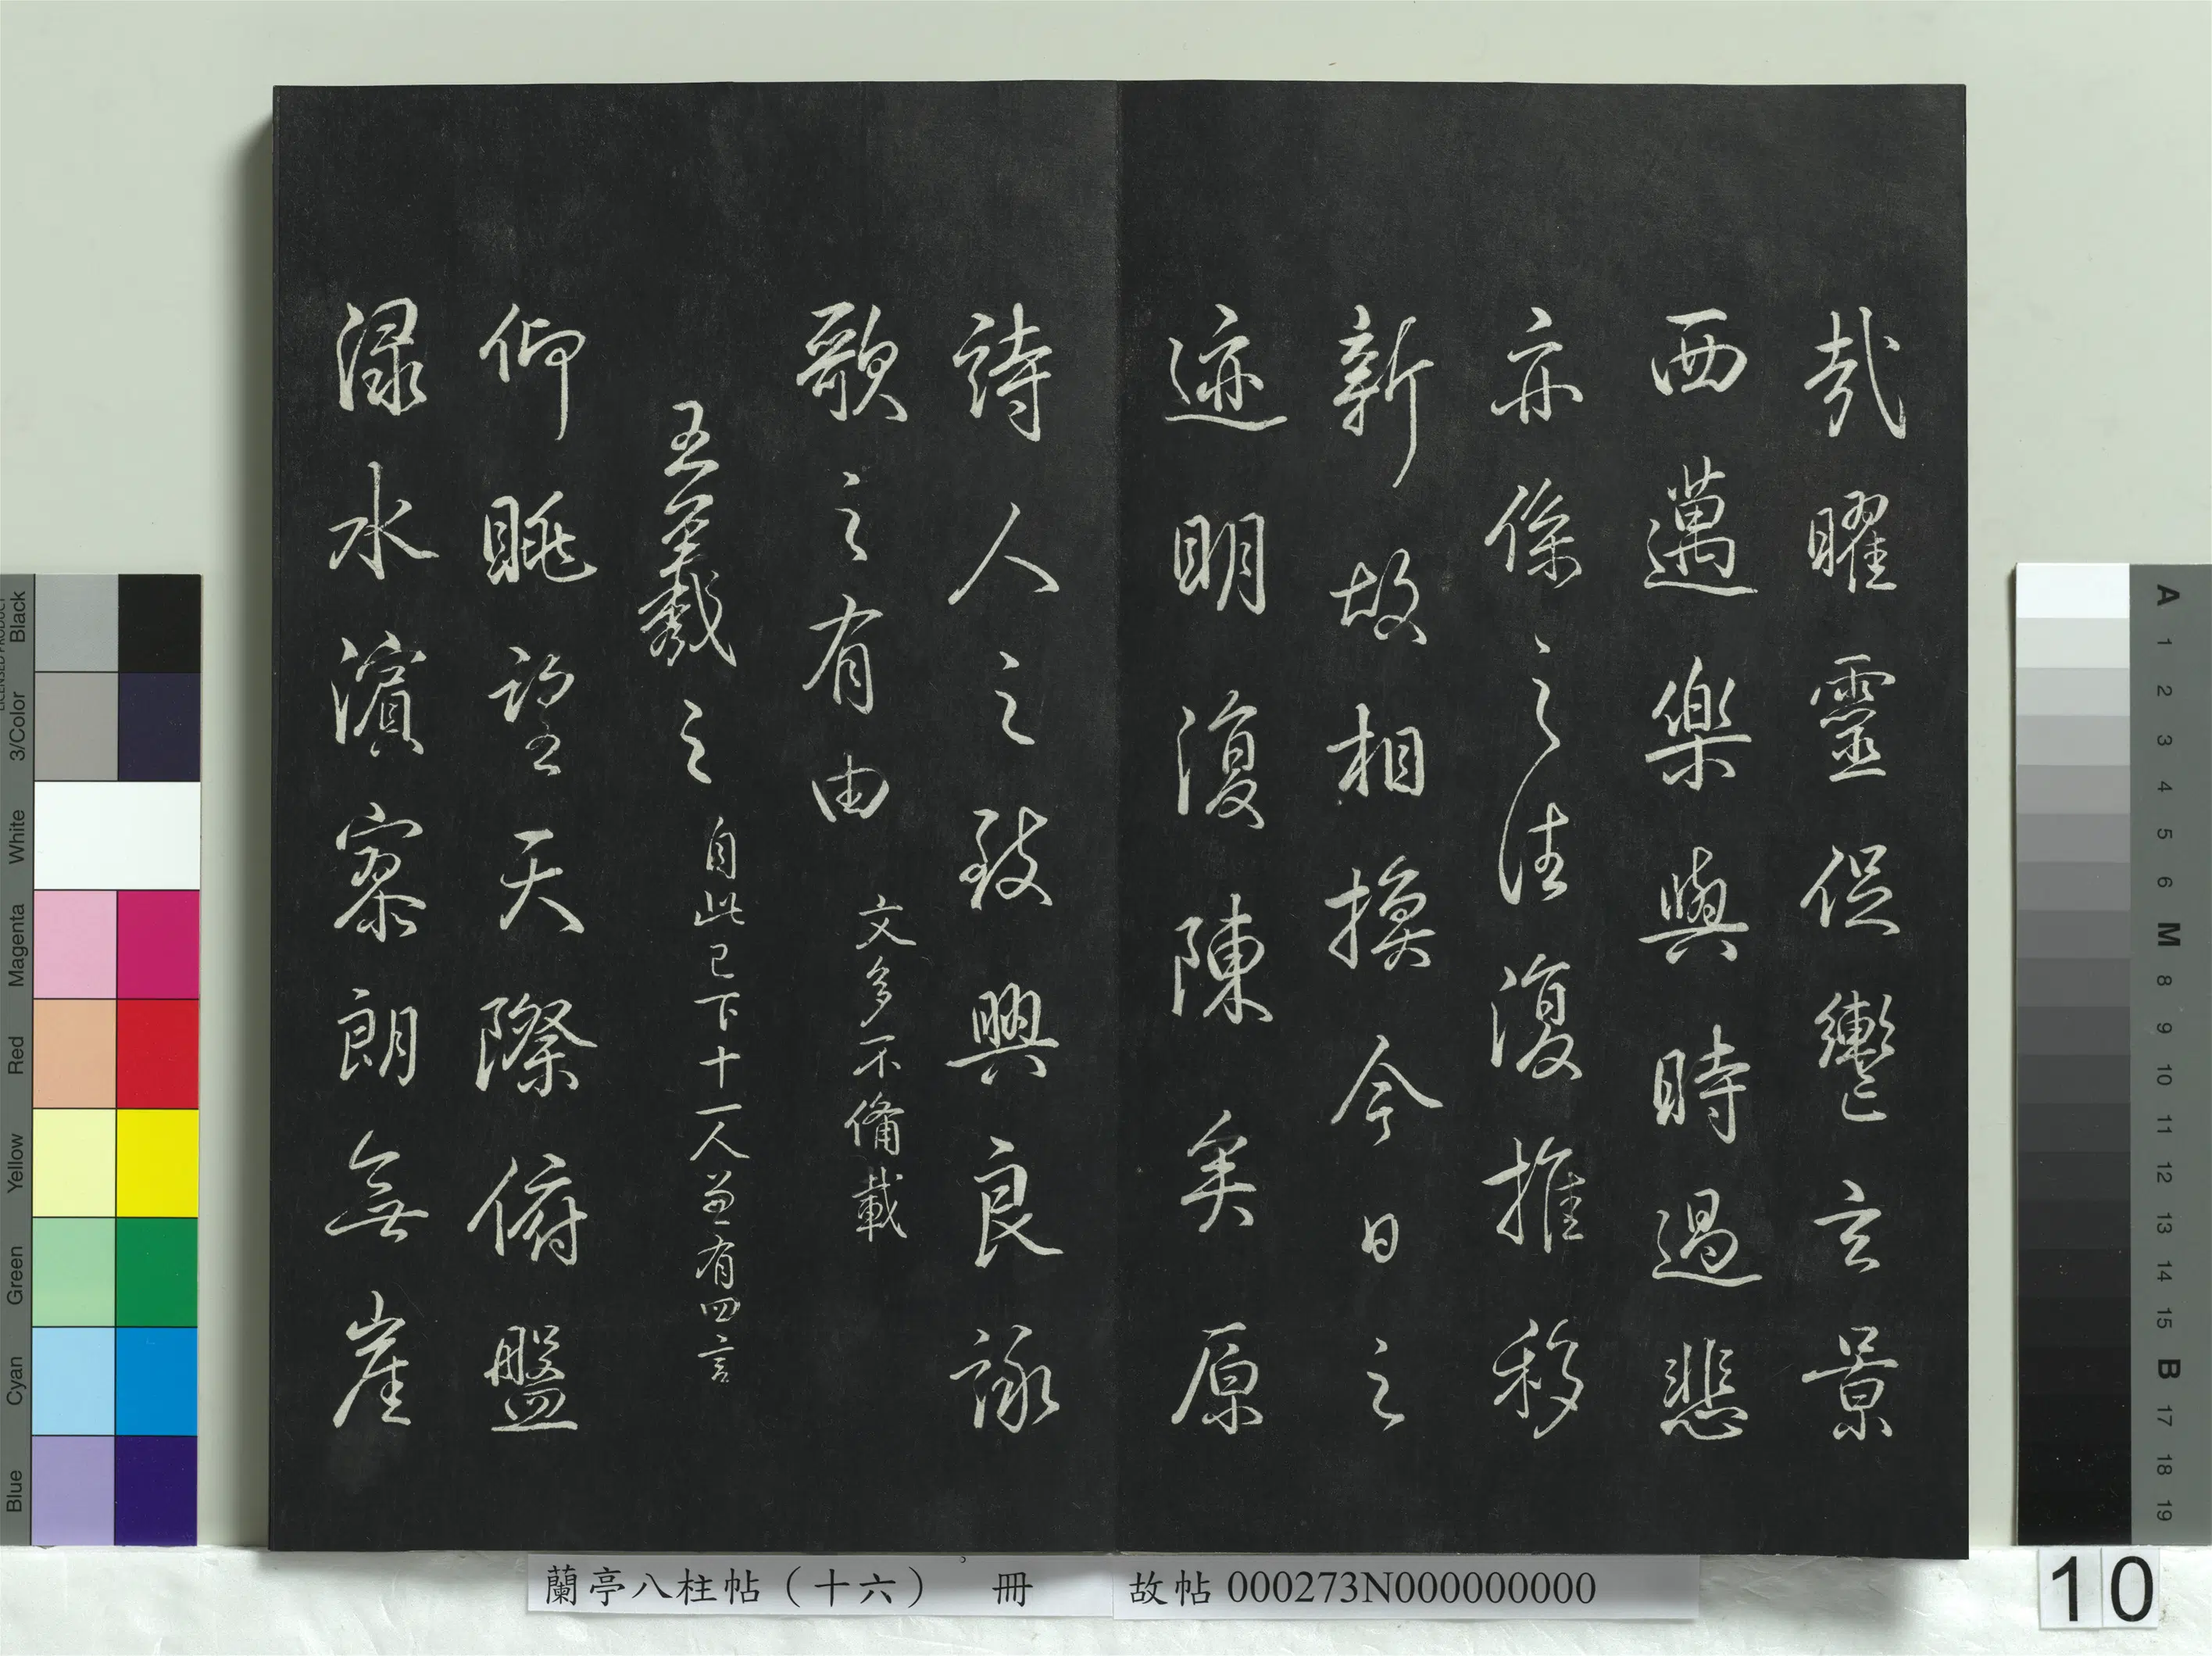 哉曜靈促轡玄景
西邁樂與時過悲
亦係之往復推移
新故相換今日之
迹明復陳矣原
詩人之致興良詠
歌之有由 文多不備載
王羲之 自此已下十一人兼有四言
仰眺望天際俯盤
淥水濱寥朗無崖
蘭亭八柱帖（十六） 冊
故帖000273N000000000
10
Black
3/Color
White
Magenta
Red
Yellow
Green
Cyan
Blue
A
1
2
3
4
5
6
M
8
9
10
11
12
13
14
15
B
17
18
19